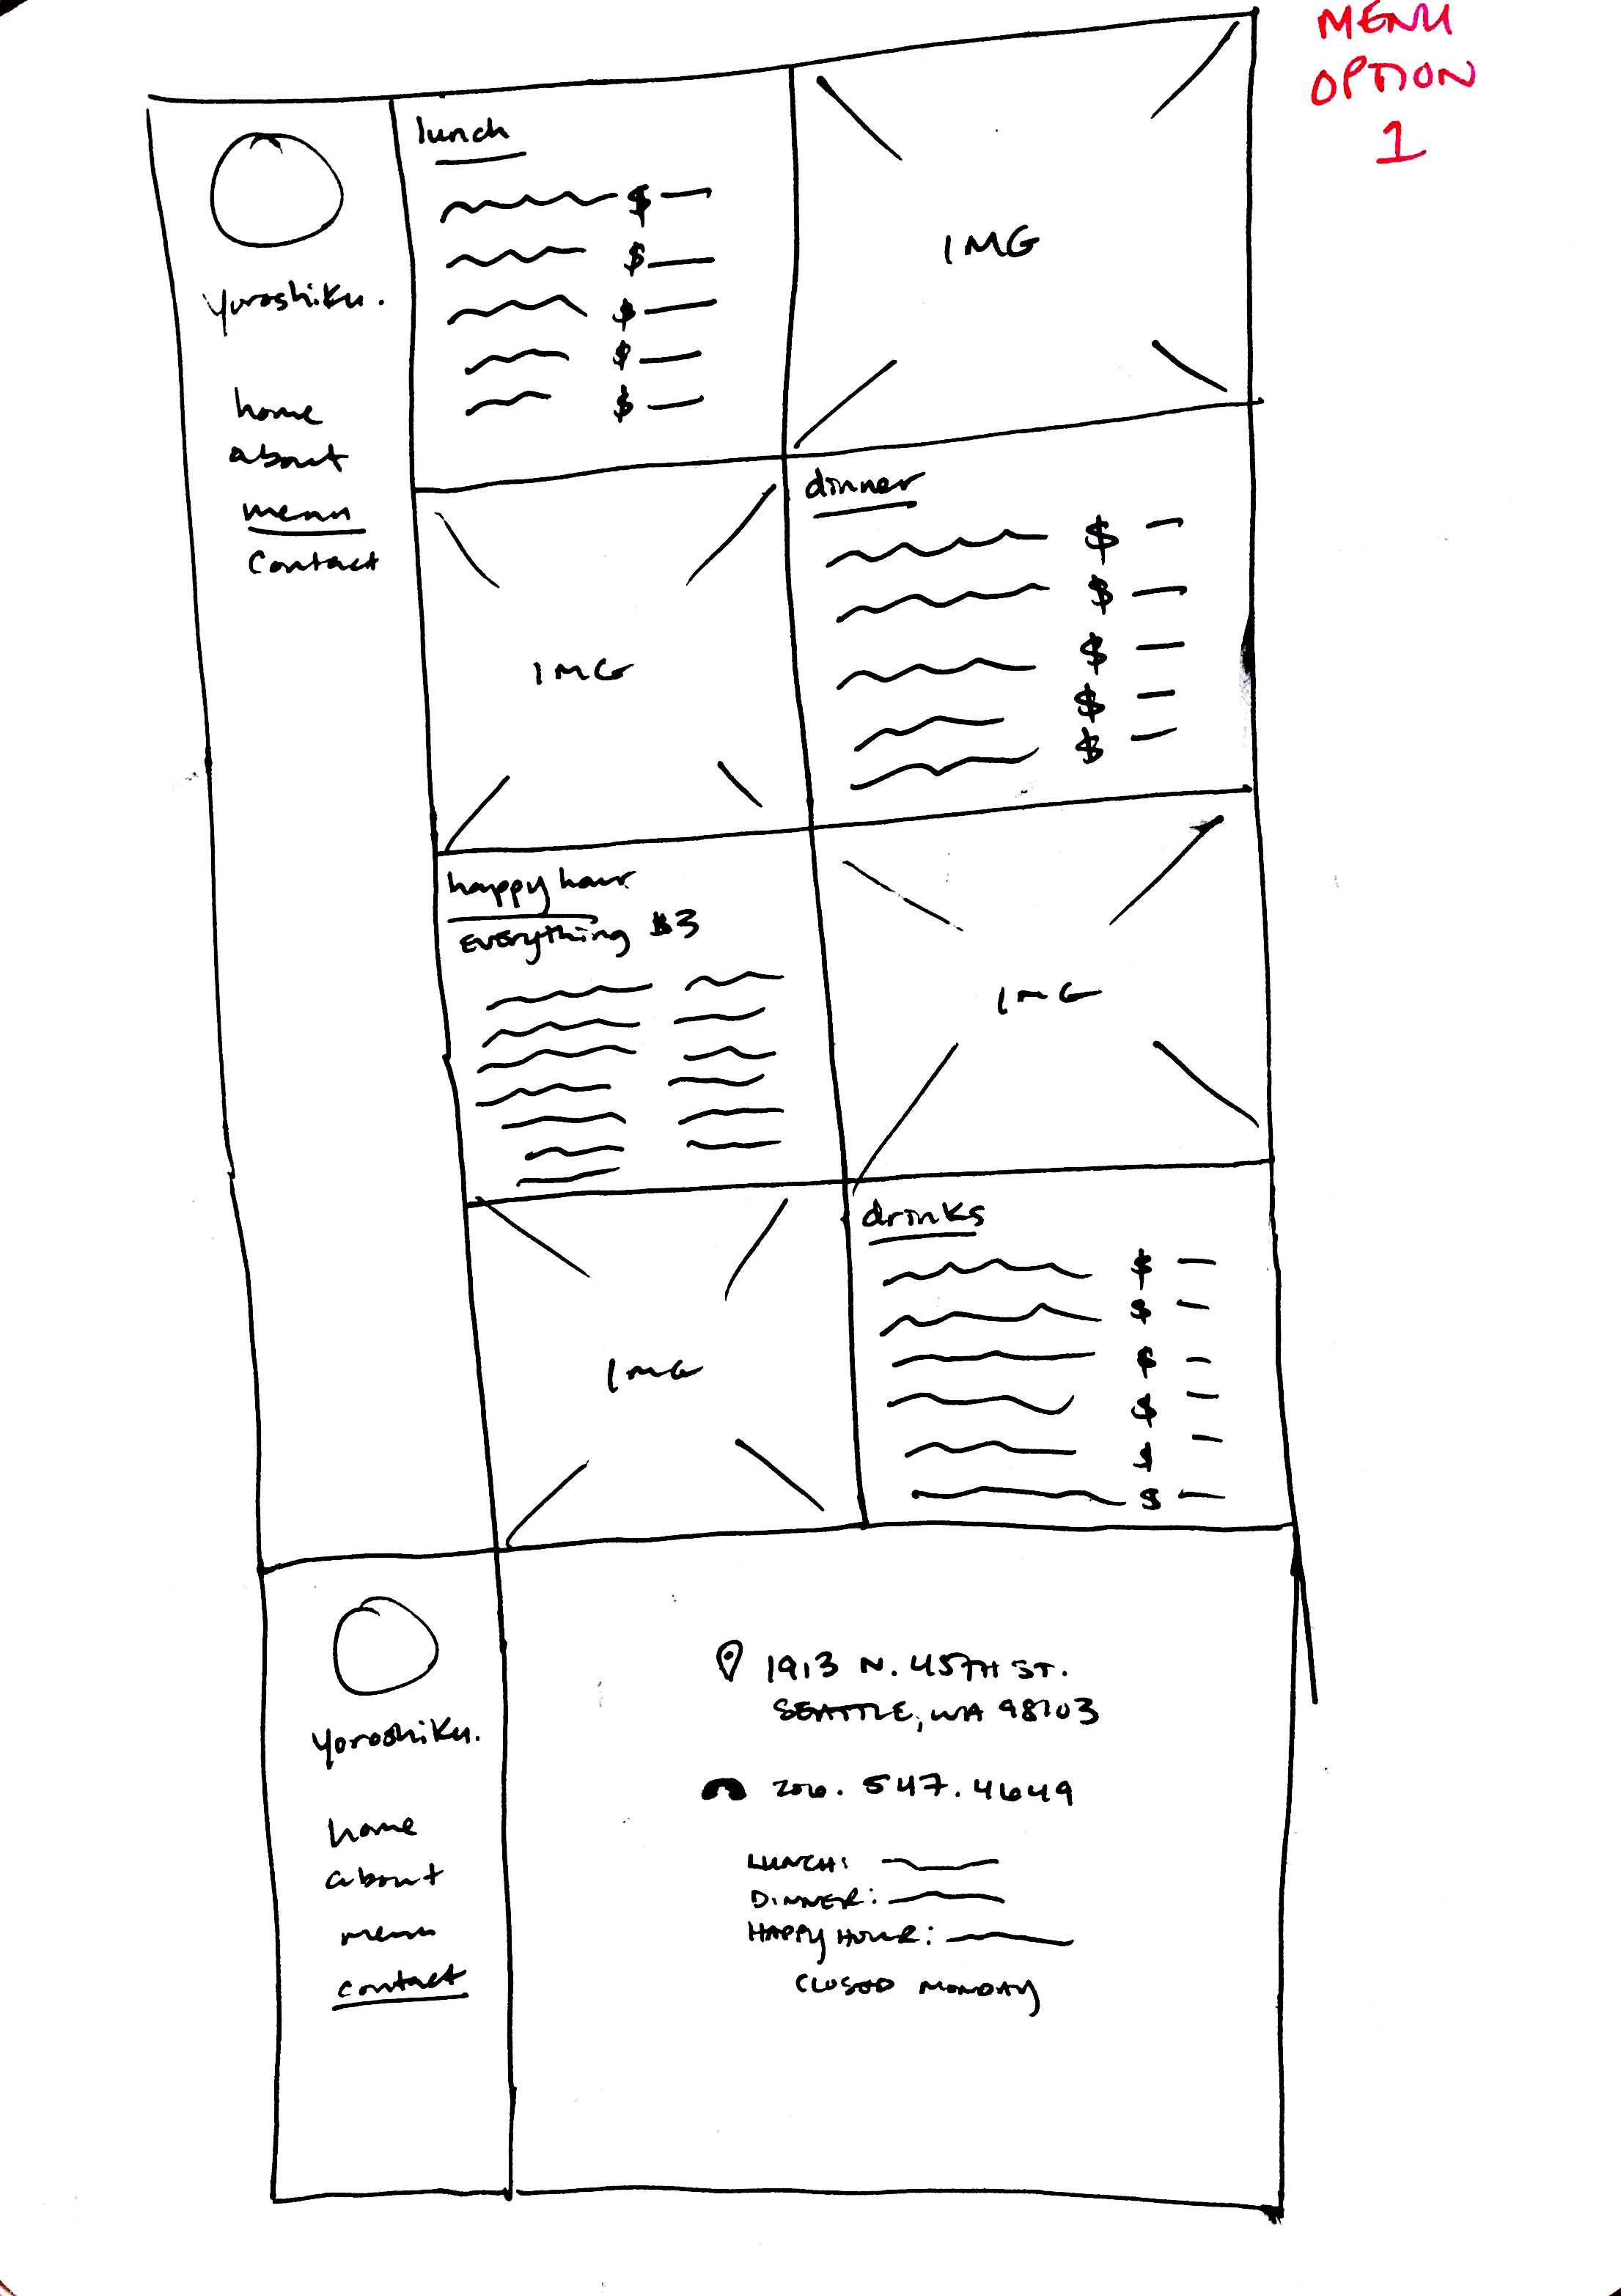 MENU
OPTION
1
yoroshiku.
home
about
menu
contact
lunch
$
$
$
$
$
IMG
IMG
dinner
$
$
$
$
$
happy hour
EVERYTHING $3
IMG
IMG
drinks
$
$
$
$
$
$
yoroshiku.
home
about
menu
contact
1913 N. 45TH ST.
SEATTLE, WA 98103
206. 547. 4649
LUNCH:
DINNER:
HAPPY HOUR:
CLOSED MONDAY